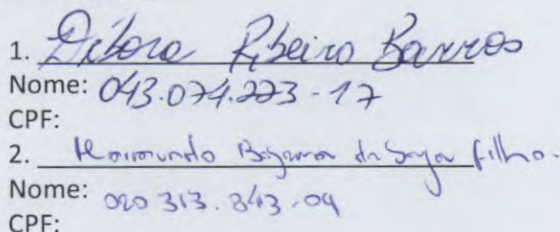 1. Débora Ribeiro Barros
Nome: 043.074.223-17
CPF:
2. Raimundo da Filho.
Nome: 020 313. 343.09
CPF: